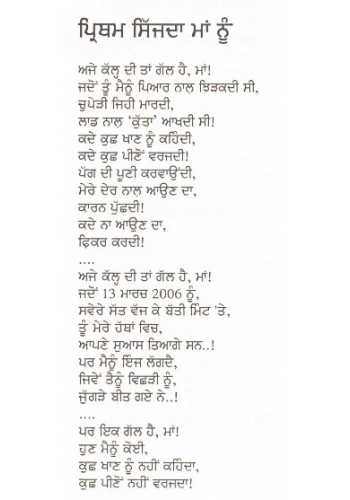 ਪ੍ਰਿਥਮ ਸਿੱਜਦਾ ਮਾਂ ਨੂੰ
ਅਜੇ ਕੱਲ੍ਹ ਦੀ ਤਾਂ ਗੱਲ ਹੈ, ਮਾਂ!
ਜਦੋਂ ਤੂੰ ਮੈਨੂੰ ਪਿਆਰ ਨਾਲ ਝਿੜਕਦੀ ਸੀ,
ਚੁਪੇੜੀ ਜਿਹੀ ਮਾਰਦੀ,
ਲਾਡ ਨਾਲ 'ਕੁੱਤਾ' ਆਖਦੀ ਸੀ!
ਕਦੇ ਕੁਛ ਖਾਣ ਨੂੰ ਕਹਿੰਦੀ,
ਕਦੇ ਕੁਛ ਪੀਣੋਂ ਵਰਜਦੀ!
ਪੱਗ ਦੀ ਪੂਣੀ ਕਰਵਾਉਂਦੀ,
ਮੇਰੇ ਦੇਰ ਨਾਲ ਆਉਣ ਦਾ,
ਕਾਰਨ ਪੁੱਛਦੀ!
ਕਦੇ ਨਾ ਆਉਣ ਦਾ,
ਫ਼ਿਕਰ ਕਰਦੀ!
....
ਅਜੇ ਕੱਲ੍ਹ ਦੀ ਤਾਂ ਗੱਲ ਹੈ, ਮਾਂ!
ਜਦੋਂ 13 ਮਾਰਚ 2006 ਨੂੰ,
ਸਵੇਰੇ ਸੱਤ ਵੱਜ ਕੇ ਬੱਤੀ ਮਿੰਟ 'ਤੇ,
ਤੂੰ ਮੇਰੇ ਹੱਥਾਂ ਵਿਚ,
ਆਪਣੇ ਸੁਆਸ ਤਿਆਗੇ ਸਨ..!
ਪਰ ਮੈਨੂੰ ਇੰਜ ਲੱਗਦੈ,
ਜਿਵੇਂ ਤੈਨੂੰ ਵਿਛੜੀ ਨੂੰ,
ਜੁੱਗੜੇ ਬੀਤ ਗਏ ਨੇ..!
....
ਪਰ ਇਕ ਗੱਲ ਹੈ, ਮਾਂ!
ਹੁਣ ਮੈਨੂੰ ਕੋਈ,
ਕੁਛ ਖਾਣ ਨੂੰ ਨਹੀਂ ਕਹਿੰਦਾ,
ਕੁਛ ਪੀਣੋਂ ਨਹੀਂ ਵਰਜਦਾ!